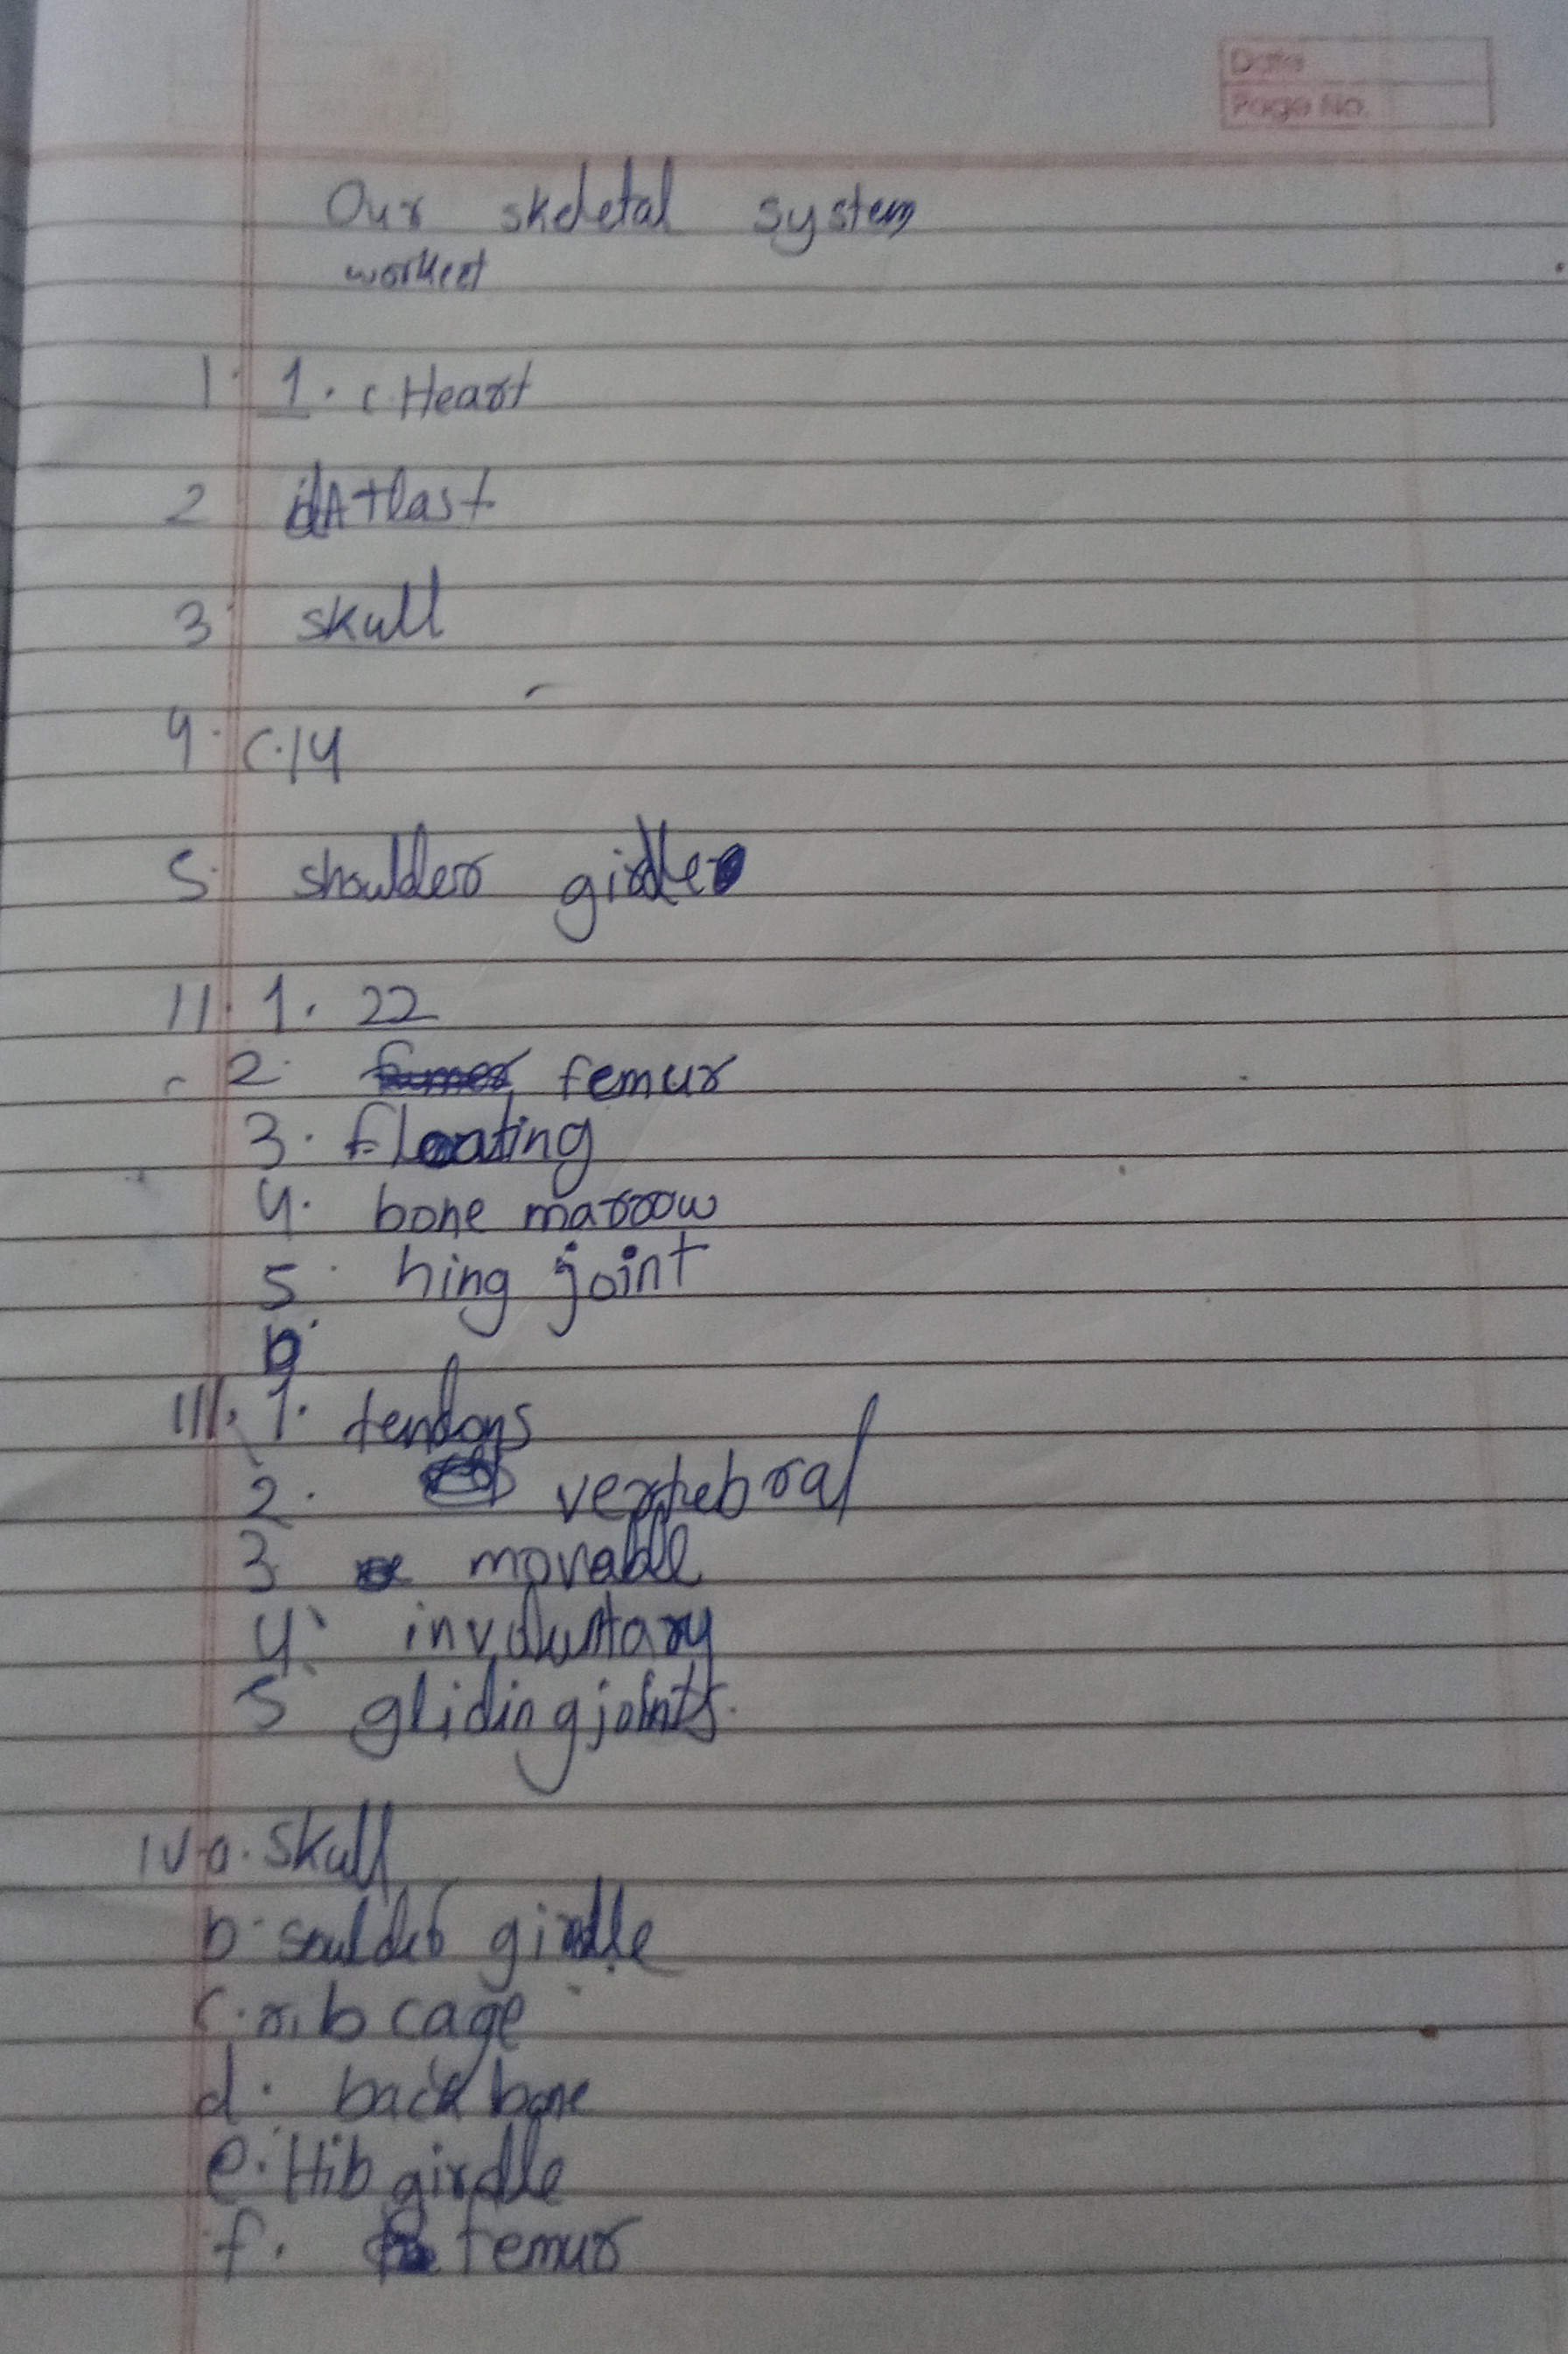 Date
Page No.
Our skeletal system
workeet
1. 1. c Heart
2 d Atlast
3. skull
4. c.14
5. shoulder girdle
11. 1. 22
2. femur
3. floating
4. bone marrow
5. hing joint
6.
111. 1. tendons
2. vertebral
3 movable
4. involuntary
5 gliding joints.
IV a. skull
b. soulder girdle
c. rib cage
d. back bone
e. Hib girdle
f. femur